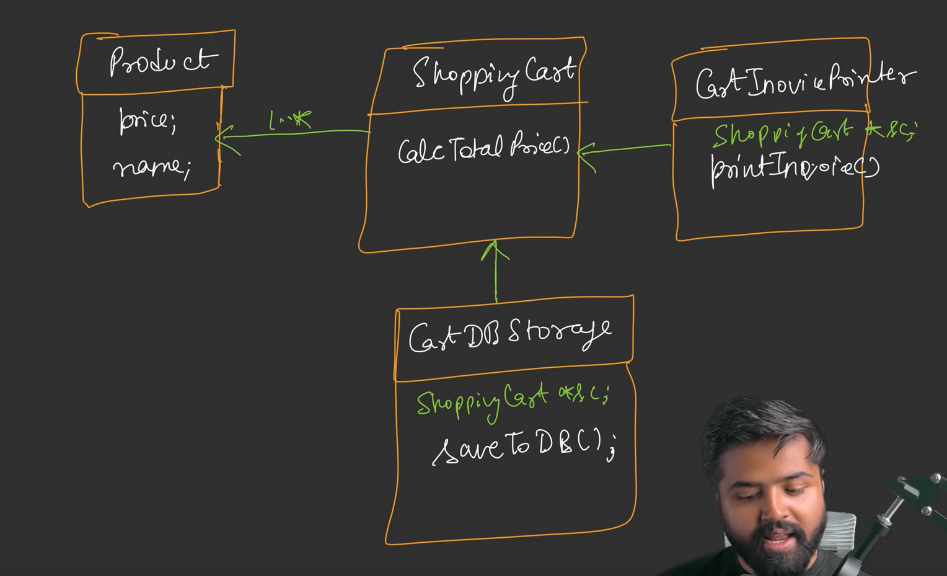 Product
price;
name;
1..*
ShoppingCart
CalcTotalPrice()
CartInoviePrinter
ShoppingCart *sc;
printInvoice()
CartDBStorage
ShoppingCart *sc;
saveToDB();